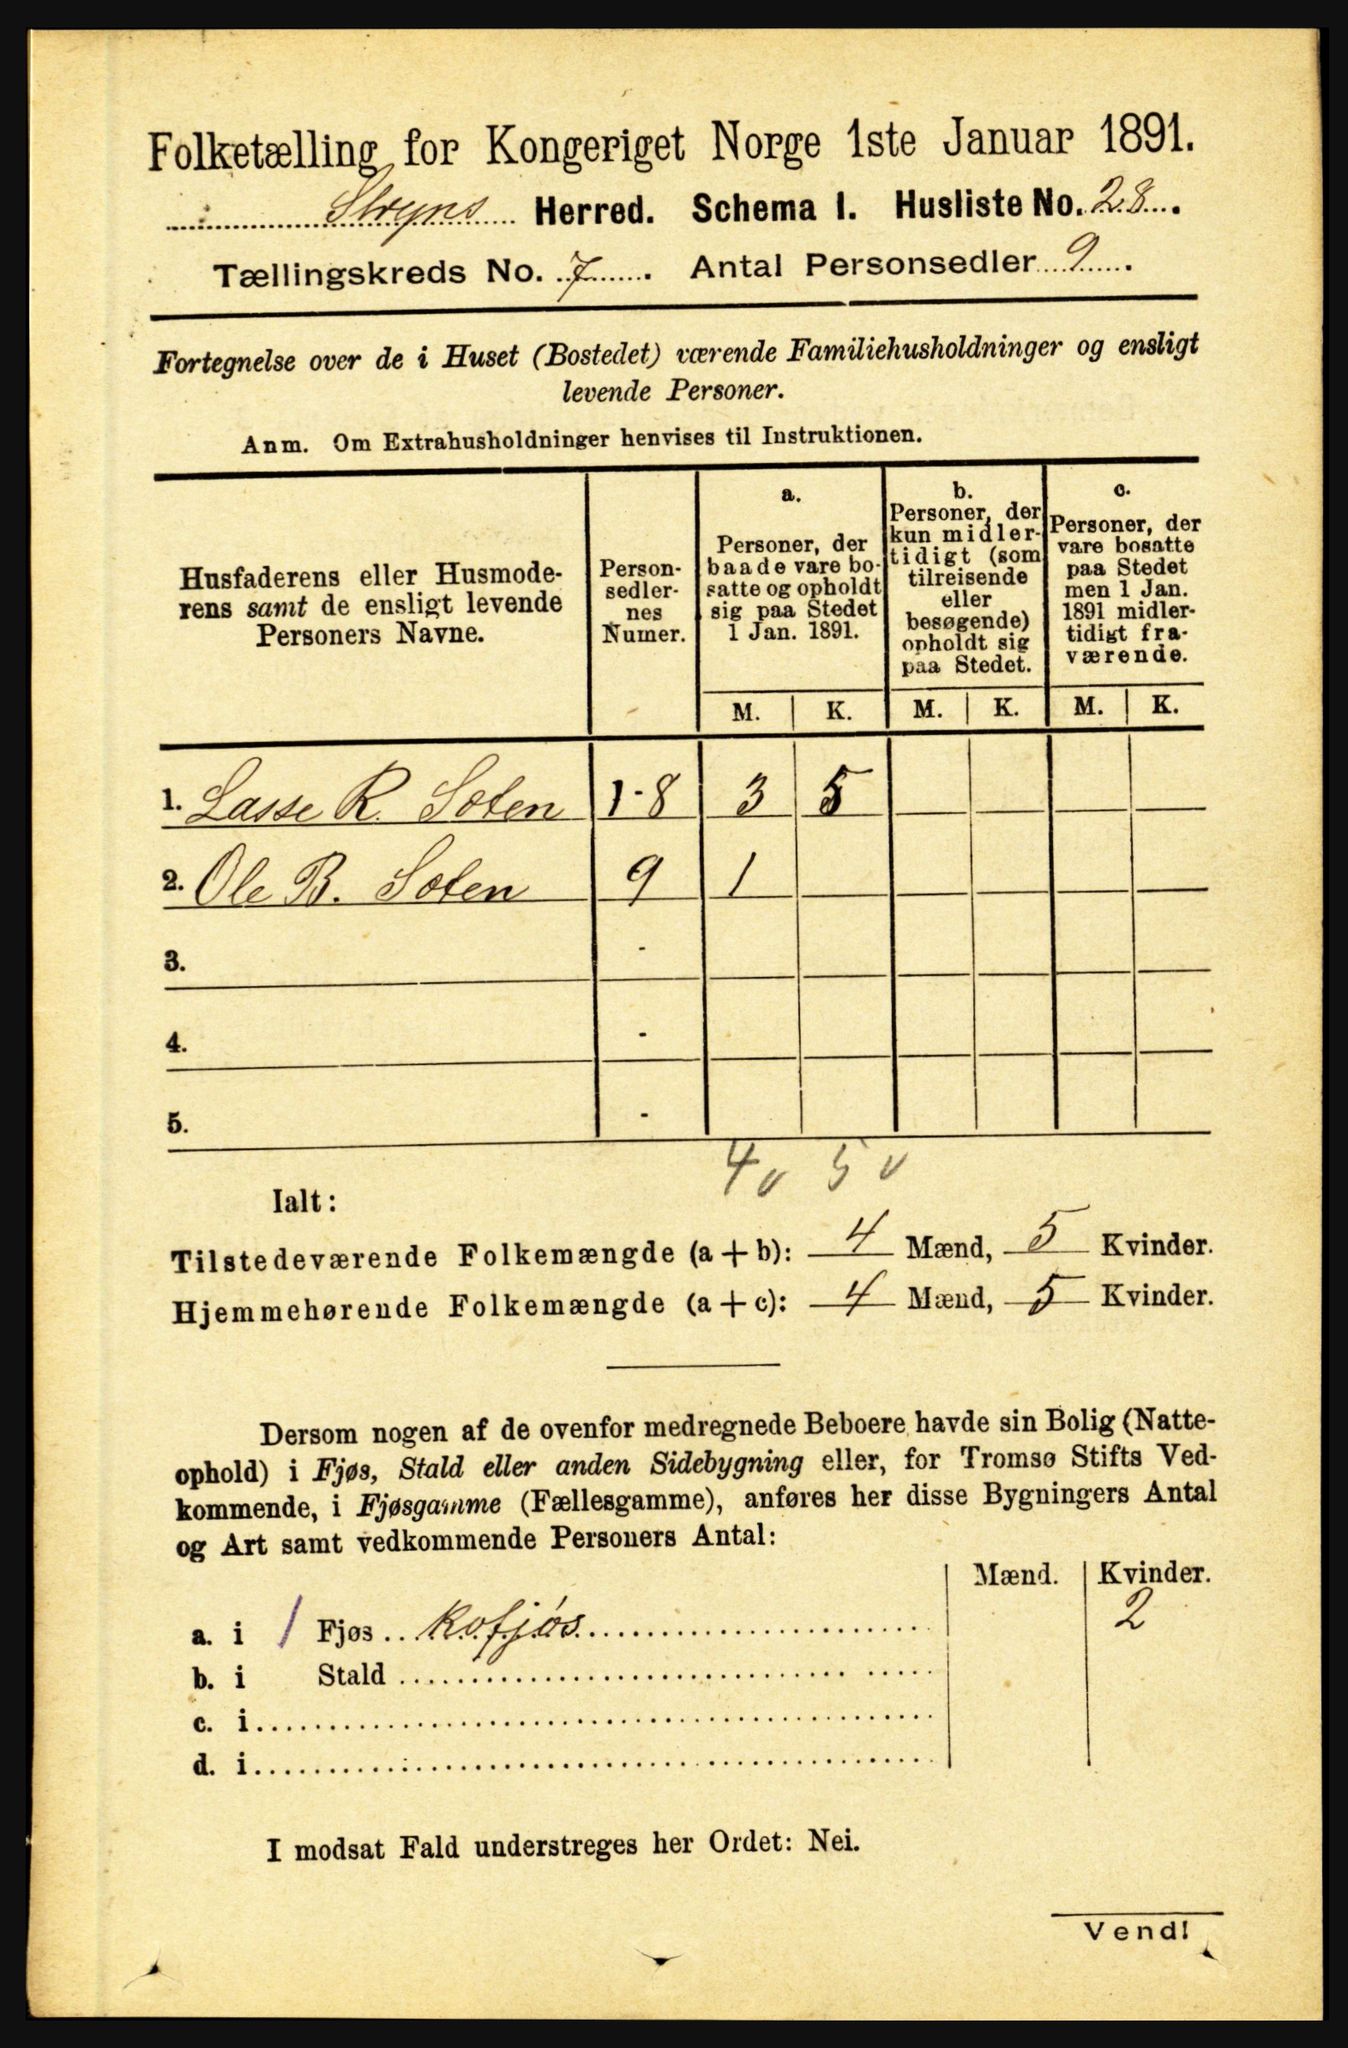 Folketælling for Kongeriget Norge 1ste Januar 1891.
Stryns Herred. Schema I. Husliste No. 28.
Tællingskreds No. 7. Antal Personsedler 9.
Fortegnelse over de i Huset (Bostedet) værende Familiehusholdninger og ensligt
levende Personer.
Anm. Om Extrahusholdninger henvises til Instruktionen.
Husfaderens eller Husmode-
rens samt de ensligt levende
Personers Navne.
Person-
sedler-
nes
Numer.
a.
Personer, der
baade vare bo-
satte og opholdt
sig paa Stedet
1 Jan. 1891.
b.
Personer, der
kun midler-
tidigt (som
tilreisende
eller
besøgende)
opholdt sig
paa Stedet.
c.
Personer, der
vare bosatte
paa Stedet
men 1 Jan.
1891 midler-
tidigt fra-
værende.
M. K. M. K. M. K.
1. Lasse R. Soten 1-8 3 5
2. Ole B. Soten 9 1
3. -
4. -
5. -
4 v 5 v
Ialt:
Tilstedeværende Folkemængde (a + b): 4 Mænd, 5 Kvinder.
Hjemmehørende Folkemængde (a + c): 4 Mænd, 5 Kvinder.
Dersom nogen af de ovenfor medregnede Beboere havde sin Bolig (Natte-
ophold) i Fjøs, Stald eller anden Sidebygning eller, for Tromsø Stifts Ved-
kommende, i Fjøsgamme (Fællesgamme), anføres her disse Bygningers Antal
og Art samt vedkommende Personers Antal:
Mænd. Kvinder.
a. i 1 Fjøs Kofjøs 2
b. i Stald
c. i
d. i
I modsat Fald understreges her Ordet: Nei.
Vend!